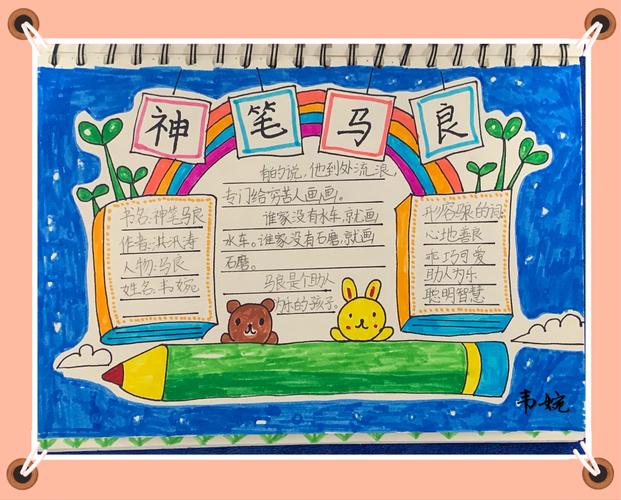 神笔马良
书名:神笔马良
作者:洪汛涛
人物:马良
姓名:韦婉
有的说,他到外流浪,
专门给穷苦人画画。
谁家没有水车,就画
水车。谁家没有石磨,就画
石磨。
马良是个助人
为乐的孩子。
形容马良的词:
心地善良
乖巧可爱
助人为乐
聪明智慧
韦婉